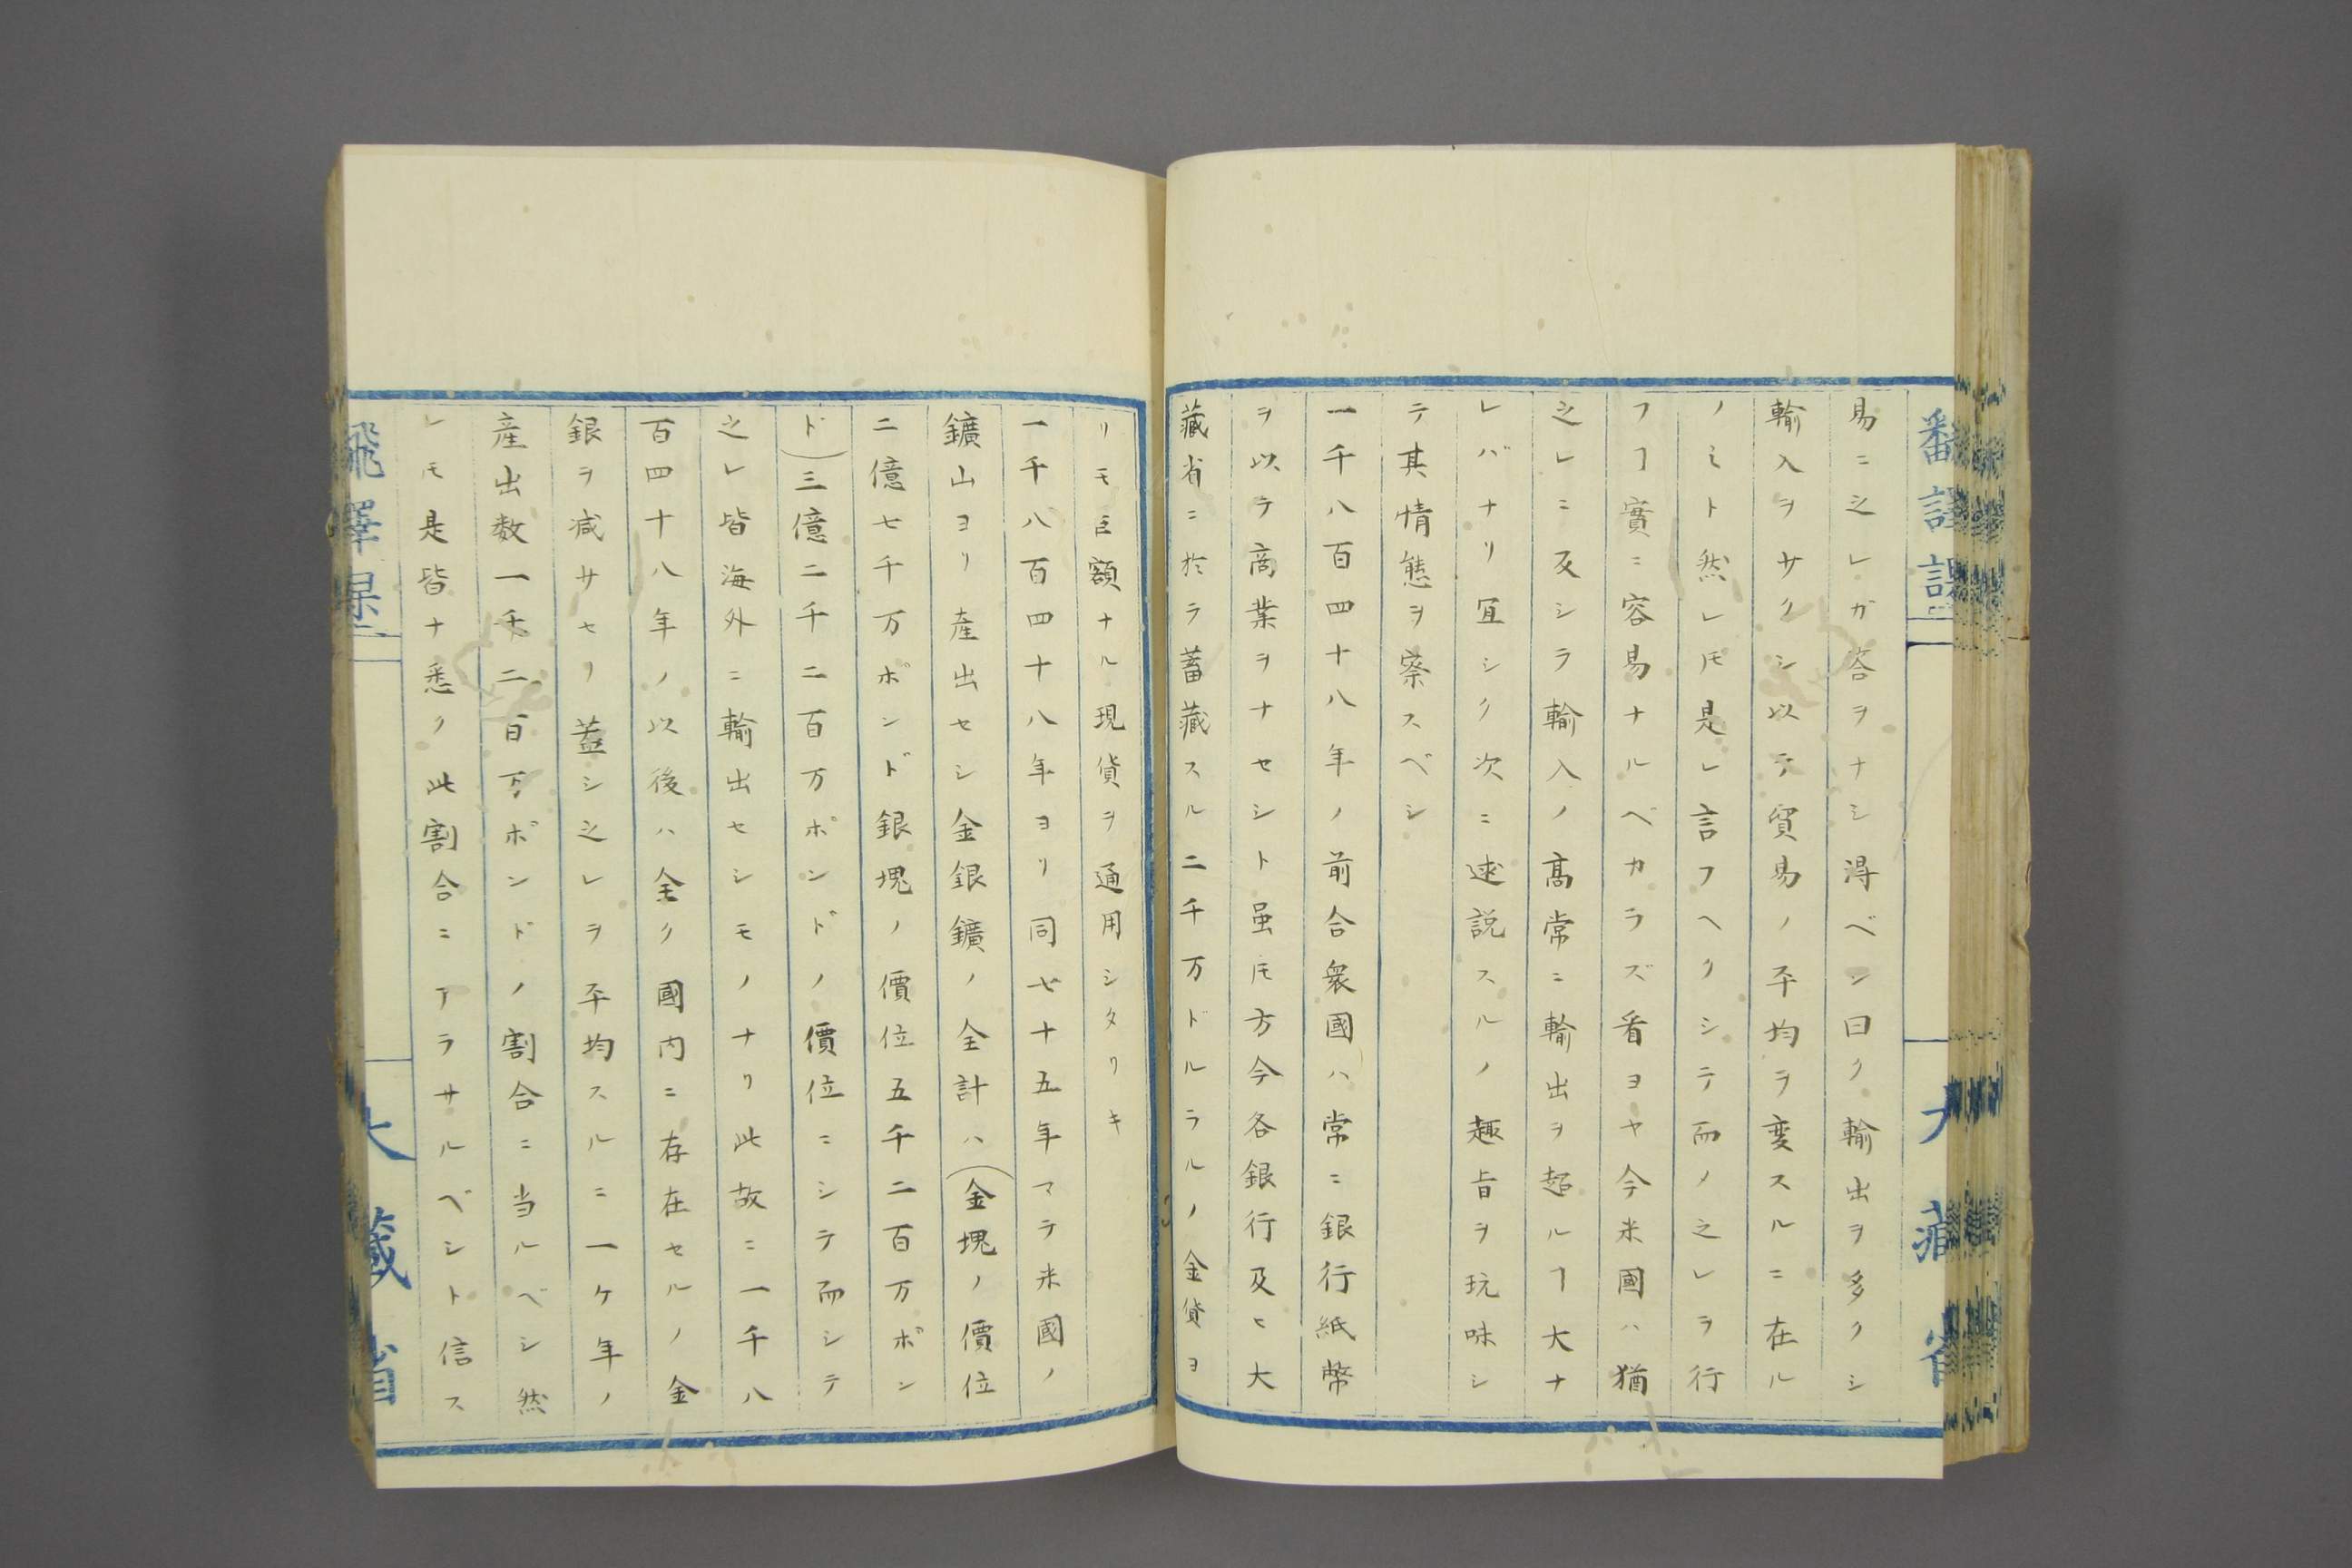 翻譯課
大藏省
易ニ之レガ答ヲナシ得ベシ曰ク輸出ヲ多クシ
輸入ヲサクシ以テ貿易ノ平均ヲ変スルニ在ル
ノミト然レ𪜈是レ言フヘクシテ而ノ之レヲ行
フヿ實ニ容易ナルベカラズ看ヨヤ今米國ハ猶
之レニ反シテ輸入ノ髙常ニ輸出ヲ超ルヿ大ナ
レバナリ冝シク次ニ逑説スルノ趣旨ヲ玩味シ
テ其情態ヲ察スベシ
一千八百四十八年ノ前合衆國ハ常ニ銀行紙幣
ヲ以テ商業ヲナセシト虽𪜈方今各銀行及ヒ大
藏省ニ於テ蓄藏スル二千万ドルラルノ金貨ヨ
リモ巨額ナル現貨ヲ通用シタリキ
一千八百四十八年ヨリ同七十五年マテ米國ノ
鑛山ヨリ産出セシ金銀鑛ノ全計ハ(金塊ノ價位
二億七千万ポンド銀塊ノ價位五千二百万ポン
ド)三億二千二百万ポンドノ價位ニシテ而シテ
之レ皆海外ニ輸出セシモノナリ此故ニ一千八
百四十八年ノ以後ハ全ク國内ニ存在セルノ金
銀ヲ减サセリ蓋シ之レヲ平均スルニ一ケ年ノ
産出数一千二百万ポンドノ割合ニ当ルベシ然
レ𪜈是皆ナ悉ク此割合ニアラサルベシト信ス
飜譯課
大藏省